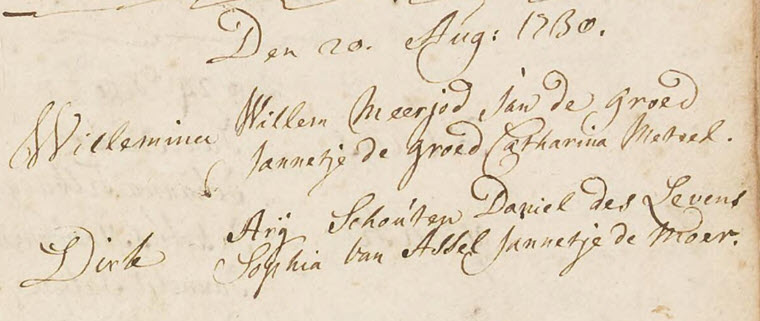 Den 20. Aug: 1730.
Willem Meerjod Jan de Groed
Willemina Jannetje de Groed Catharina Metsel.
Arij Schouten Daniel des Levens
Dirk Sophia van Assel Jannetje de Moer.